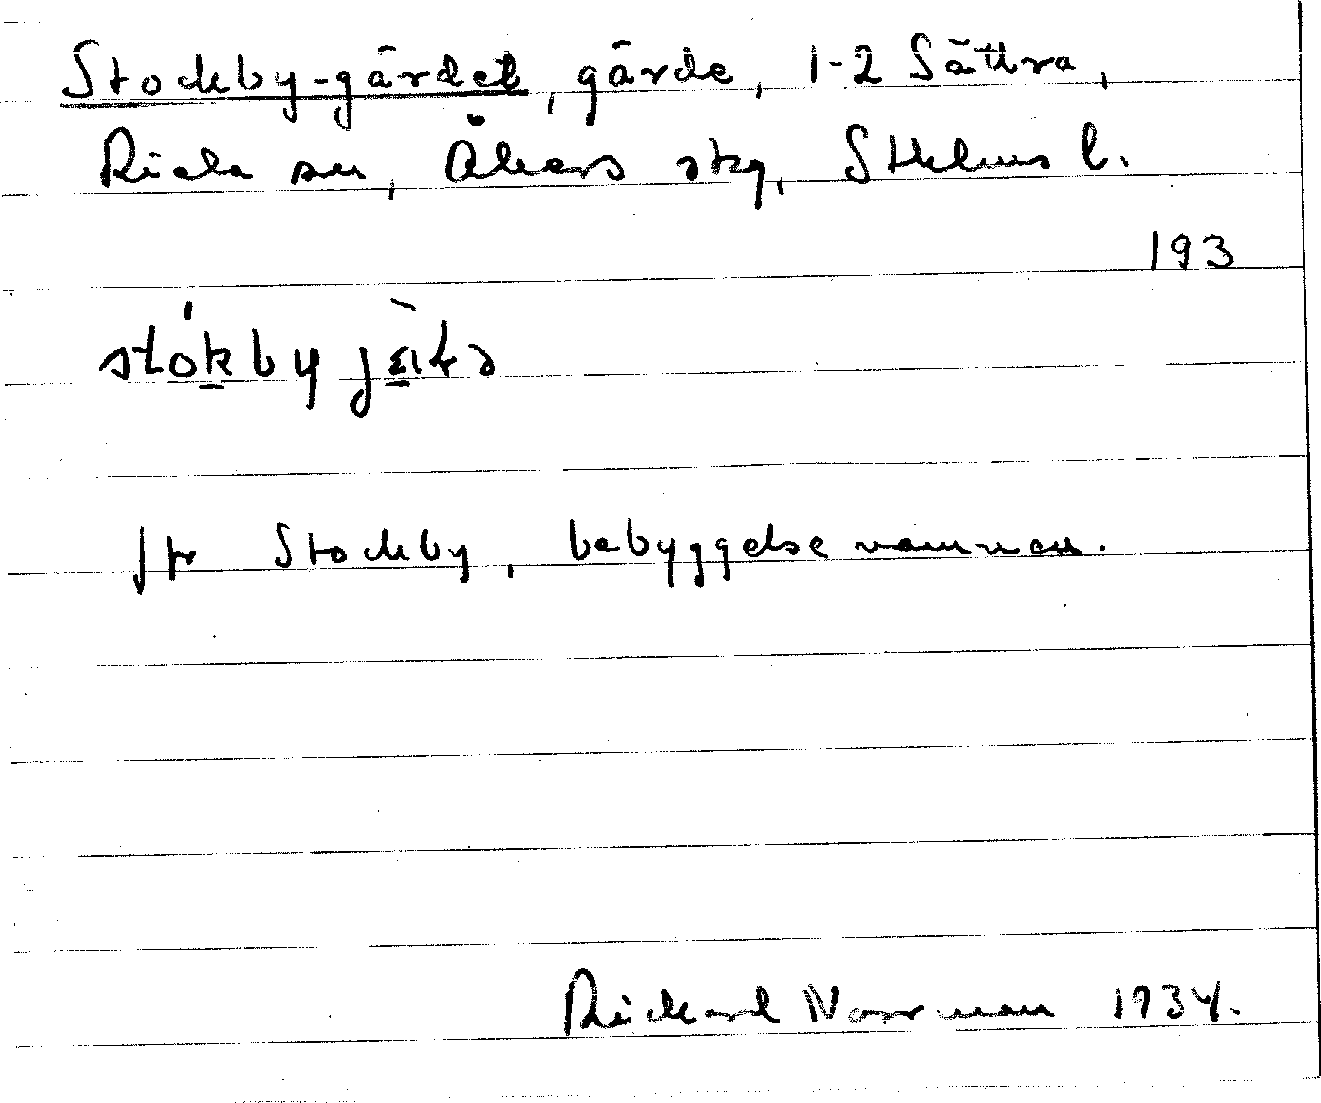 Stockby-gärdet, gärde, 1-2 Sättra,
Riala sn, Åkers skg, Sthlms l.
193
stókby
Jfr Stockby, bebyggelsenamnen.
Rickard Norrman 1934.